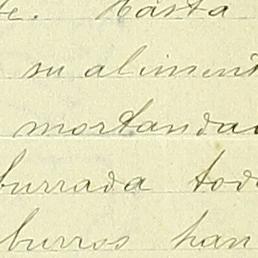 te. Basta
su aliment
mortandad
burrada tod
burros han